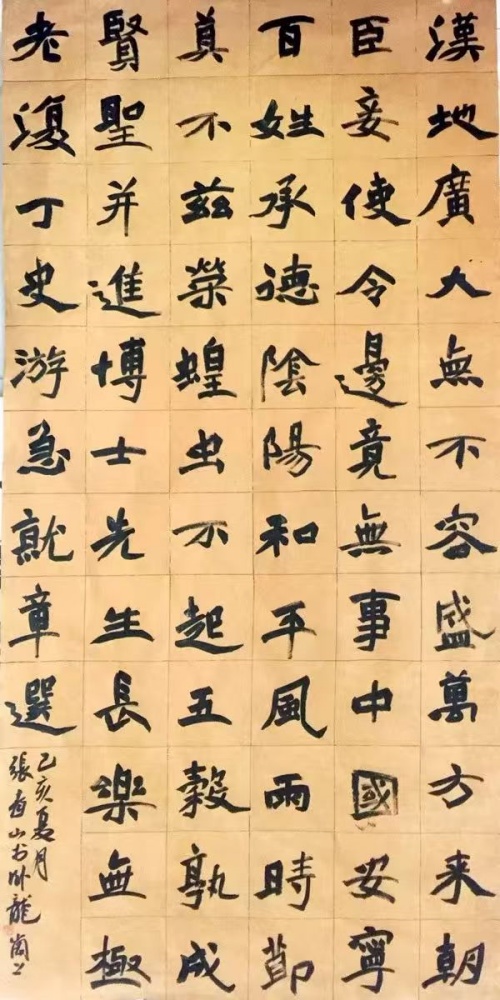 漢地廣大無不容盛萬方來朝
臣妾使令邊竟無事中國安寧
百姓承德陰陽和平風雨時節
莫不茲榮蝗虫不起五穀孰成
賢聖并進博士先生長樂無極
老復丁史游急就章選
己亥夏月
張山书卧龍崗上